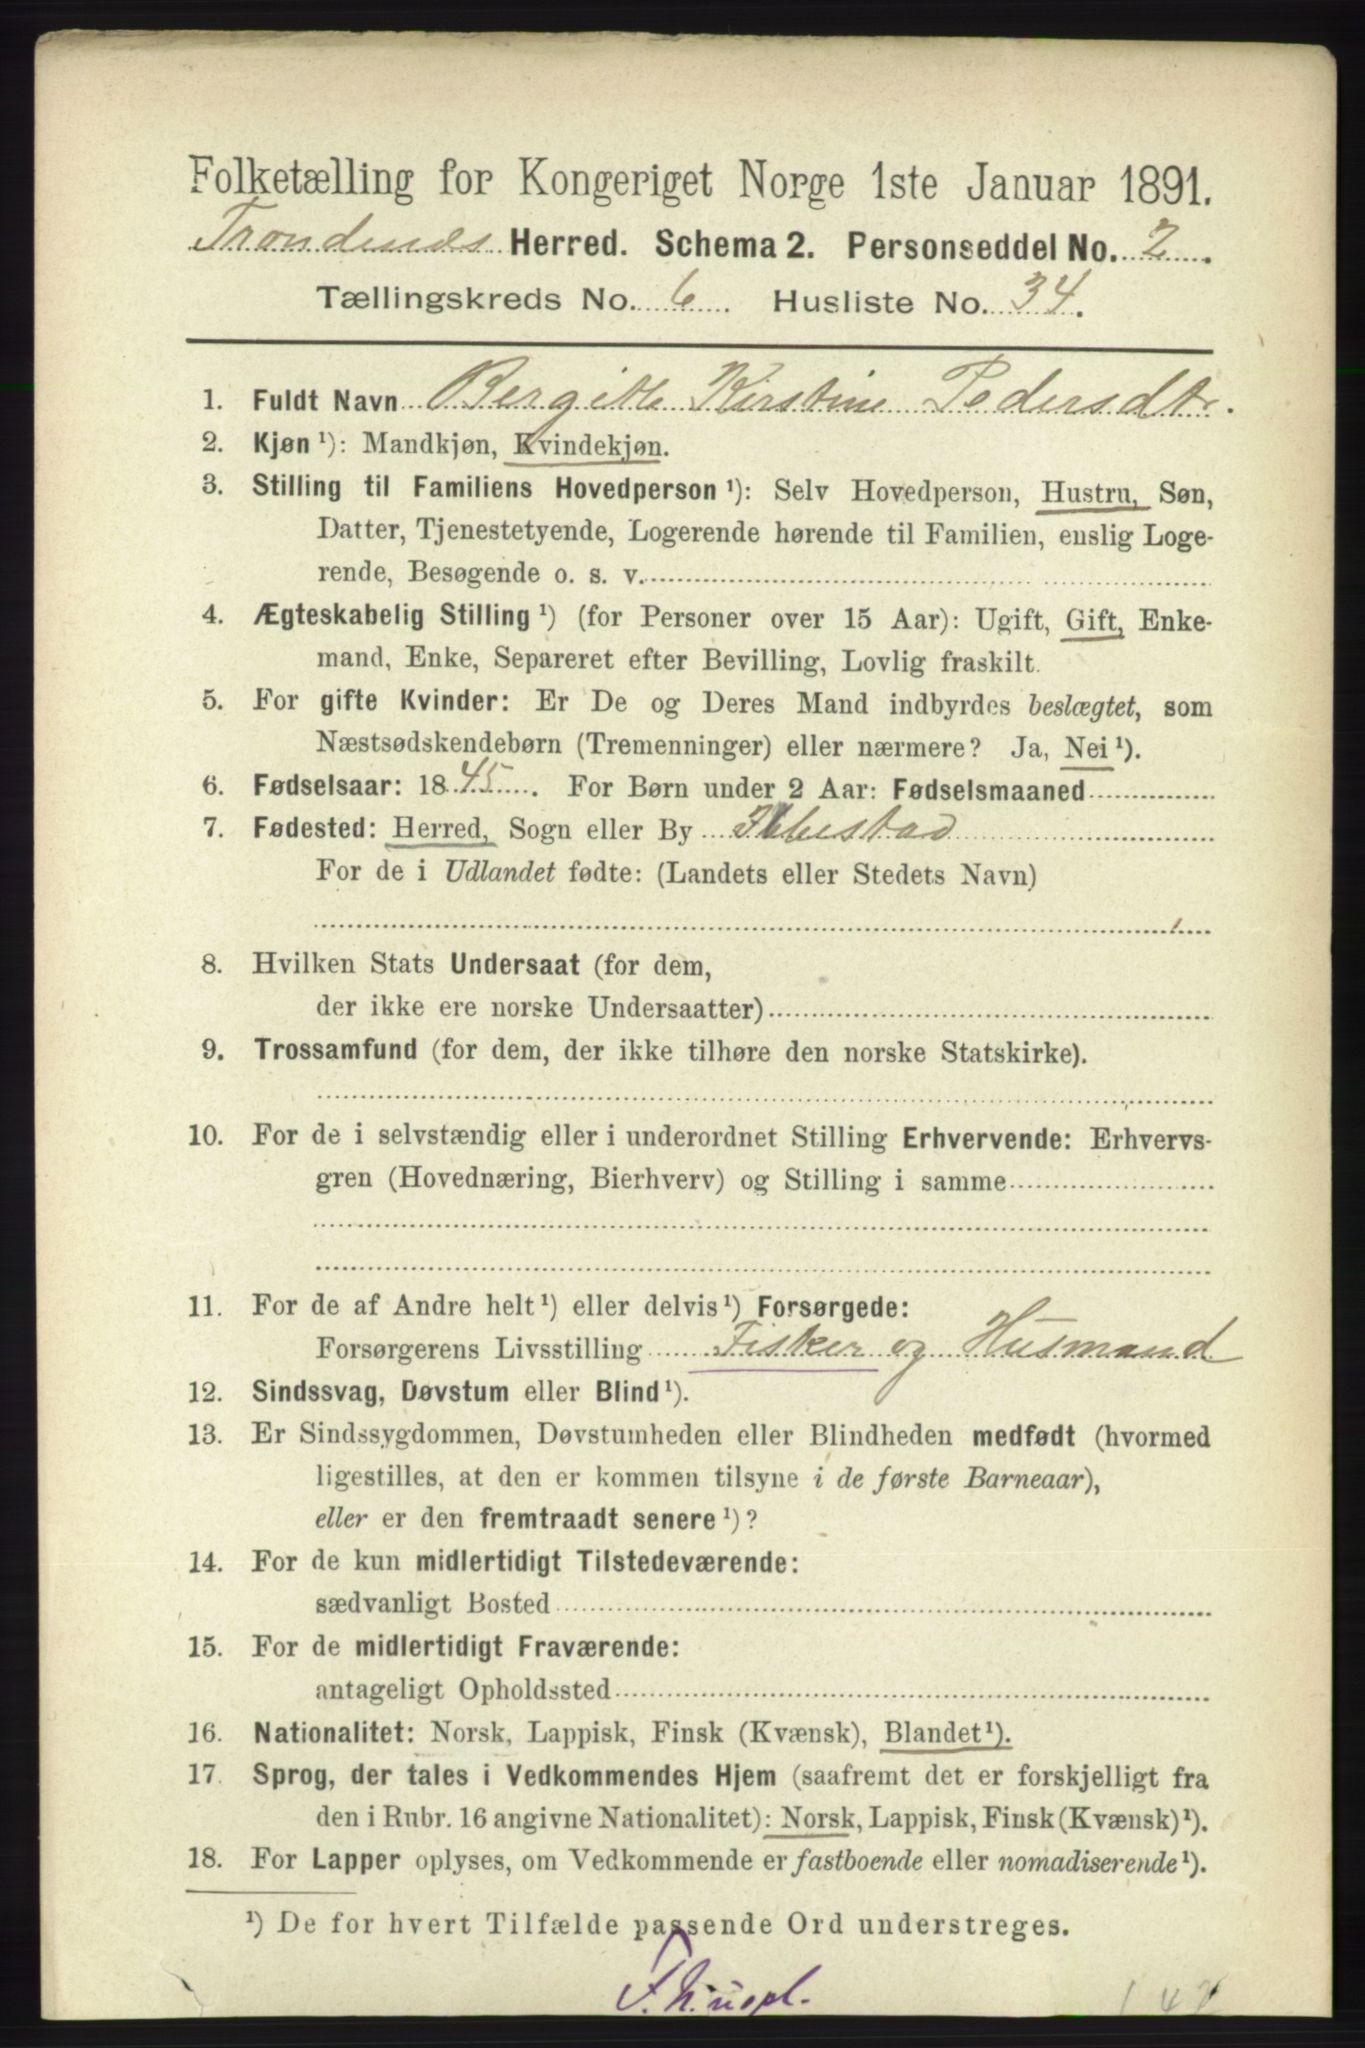 Folketælling for Kongeriget Norge 1ste Januar 1891.
Trondenæs Herred. Schema 2. Personseddel No. 2.
Tællingskreds No. 6. Husliste No. 34.
1. Fuldt Navn Bergitte Kirstine Pedersdtr.
2. Kjøn ¹): Mandkjøn, Kvindekjøn.
3. Stilling til Familiens Hovedperson ¹): Selv Hovedperson, Hustru, Søn,
Datter, Tjenestetyende, Logerende hørende til Familien, enslig Loge-
rende, Besøgende o. s. v.
4. Ægteskabelig Stilling ¹) (for Personer over 15 Aar): Ugift, Gift, Enke-
mand, Enke, Separeret efter Bevilling, Lovlig fraskilt.
5. For gifte Kvinder: Er De og Deres Mand indbyrdes beslægtet, som
Næstsødskendebørn (Tremenninger) eller nærmere? Ja, Nei ¹).
6. Fødselsaar: 1845. For Børn under 2 Aar: Fødselsmaaned
7. Fødested: Herred, Sogn eller By Ibestad
For de i Udlandet fødte: (Landets eller Stedets Navn)
8. Hvilken Stats Undersaat (for dem,
der ikke ere norske Undersaatter)
9. Trossamfund (for dem, der ikke tilhøre den norske Statskirke).
10. For de i selvstændig eller i underordnet Stilling Erhvervende: Erhvervs-
gren (Hovednæring, Bierhverv) og Stilling i samme
11. For de af Andre helt ¹) eller delvis ¹) Forsørgede:
Forsørgerens Livsstilling Fisker og Husmand
12. Sindssvag, Døvstum eller Blind ¹).
13. Er Sindssygdommen, Døvstumheden eller Blindheden medfødt (hvormed
ligestilles, at den er kommen tilsyne i de første Barneaar),
eller er den fremtraadt senere ¹)?
14. For de kun midlertidigt Tilstedeværende:
sædvanligt Bosted
15. For de midlertidigt Fraværende:
antageligt Opholdssted
16. Nationalitet: Norsk, Lappisk, Finsk (Kvænsk), Blandet ¹).
17. Sprog, der tales i Vedkommendes Hjem (saafremt det er forskjelligt fra
den i Rubr. 16 angivne Nationalitet): Norsk, Lappisk, Finsk (Kvænsk) ¹).
18. For Lapper oplyses, om Vedkommende er fastboende eller nomadiserende ¹).
¹) De for hvert Tilfælde passende Ord understreges.